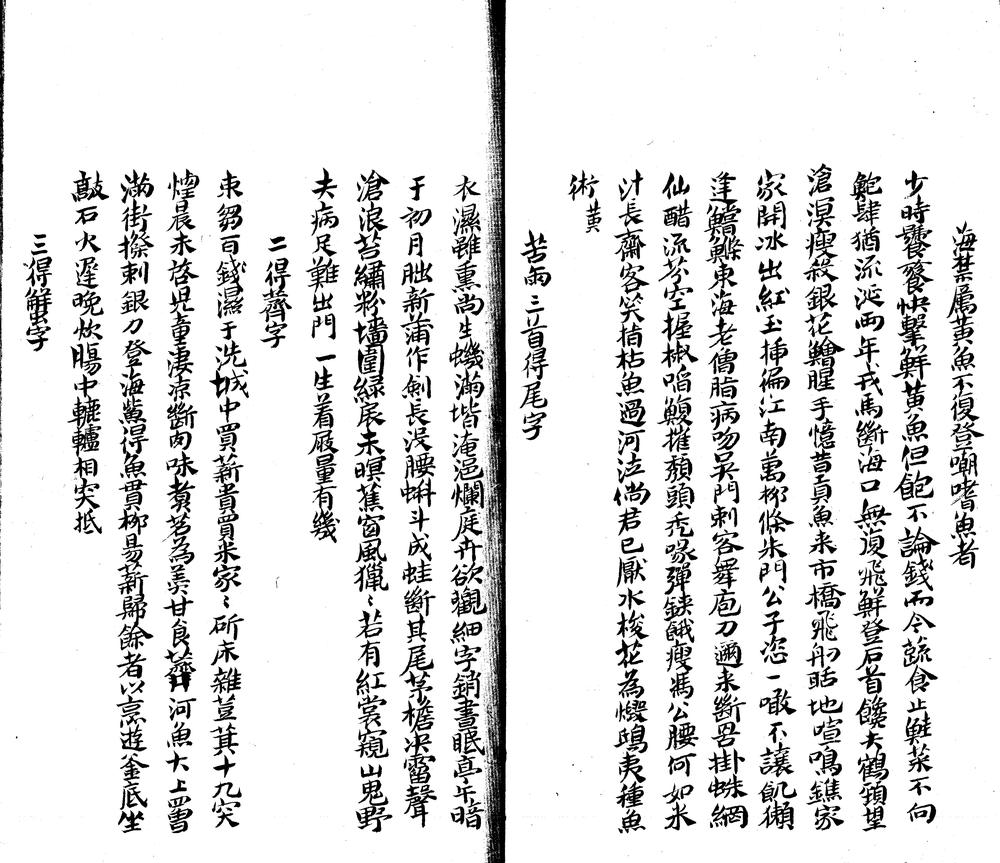 海禁厲黃魚不復登嘲嗜魚者
少時饕餮快擊鮮黃魚但飽不論錢而今蔬食止鮭菜不向
鮑肆猶流涎兩年戎馬斷海口無復飛鮮登石首饞夫鶴頸望
滄溟瘦殺銀花鱠腥手憶昔貢魚來市橋飛舠聒地喧鳴鐎家
家開冰出紅玉揷徧江南萬柳條朱門公子恣一噉不讓飢獺
逢鱨鰷東海老僧脂病吻吳門刺客舞庖刀邇來斷罟掛蛛網
仙醋流芬空握椒啗鯸摧頽頭禿喙彈鋏餓瘦馮公腰何如米
汁長齋客笑指枯魚過河泣倘君已厭水梭花為燬鴟夷種魚
術 黃
苦雨三首得尾字
衣濕雖熏尚生蟣滿堦淹浥爛庭卉欲觀細字銷晝眠亭午暗
于初月朏新蒲作劍長沒腰蝌斗成蛙斷其尾茅檐決霤聲
滄浪苔繡粉墻圍綠扆未暝蕉窗風獵〻若有紅裳窺山鬼野
夫病足難出門一生着屐量有幾
二得薺字
束芻百錢濕于洗城中買薪貴買米家〻斫床雜荳萁十九突
煙晨未啓兒童淒凉斷肉味煑茗為羨甘食薺河魚大上罾
滿街撩剌銀刀登海鯗得魚貫柳易薪歸餘者以烹遊釜底坐
敲石火遲晚炊腸中轆轤相突抵
三得蟹字